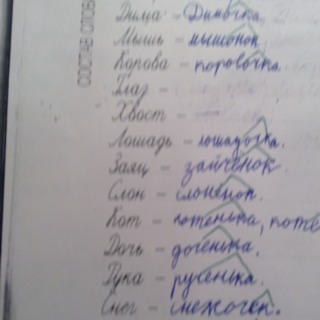 СОСТАВ СЛОВ
Дима - Димочка,
Мышь - мышонок
Корова - коровочка.
Глаз -
Хвост -
Лошадь - лошадочка.
Заяц - зайчёнок.
Слон - слонёнок.
Кот - котенька, котё
Дочь - доченька.
Рука - рученька.
Снег - снежочек.